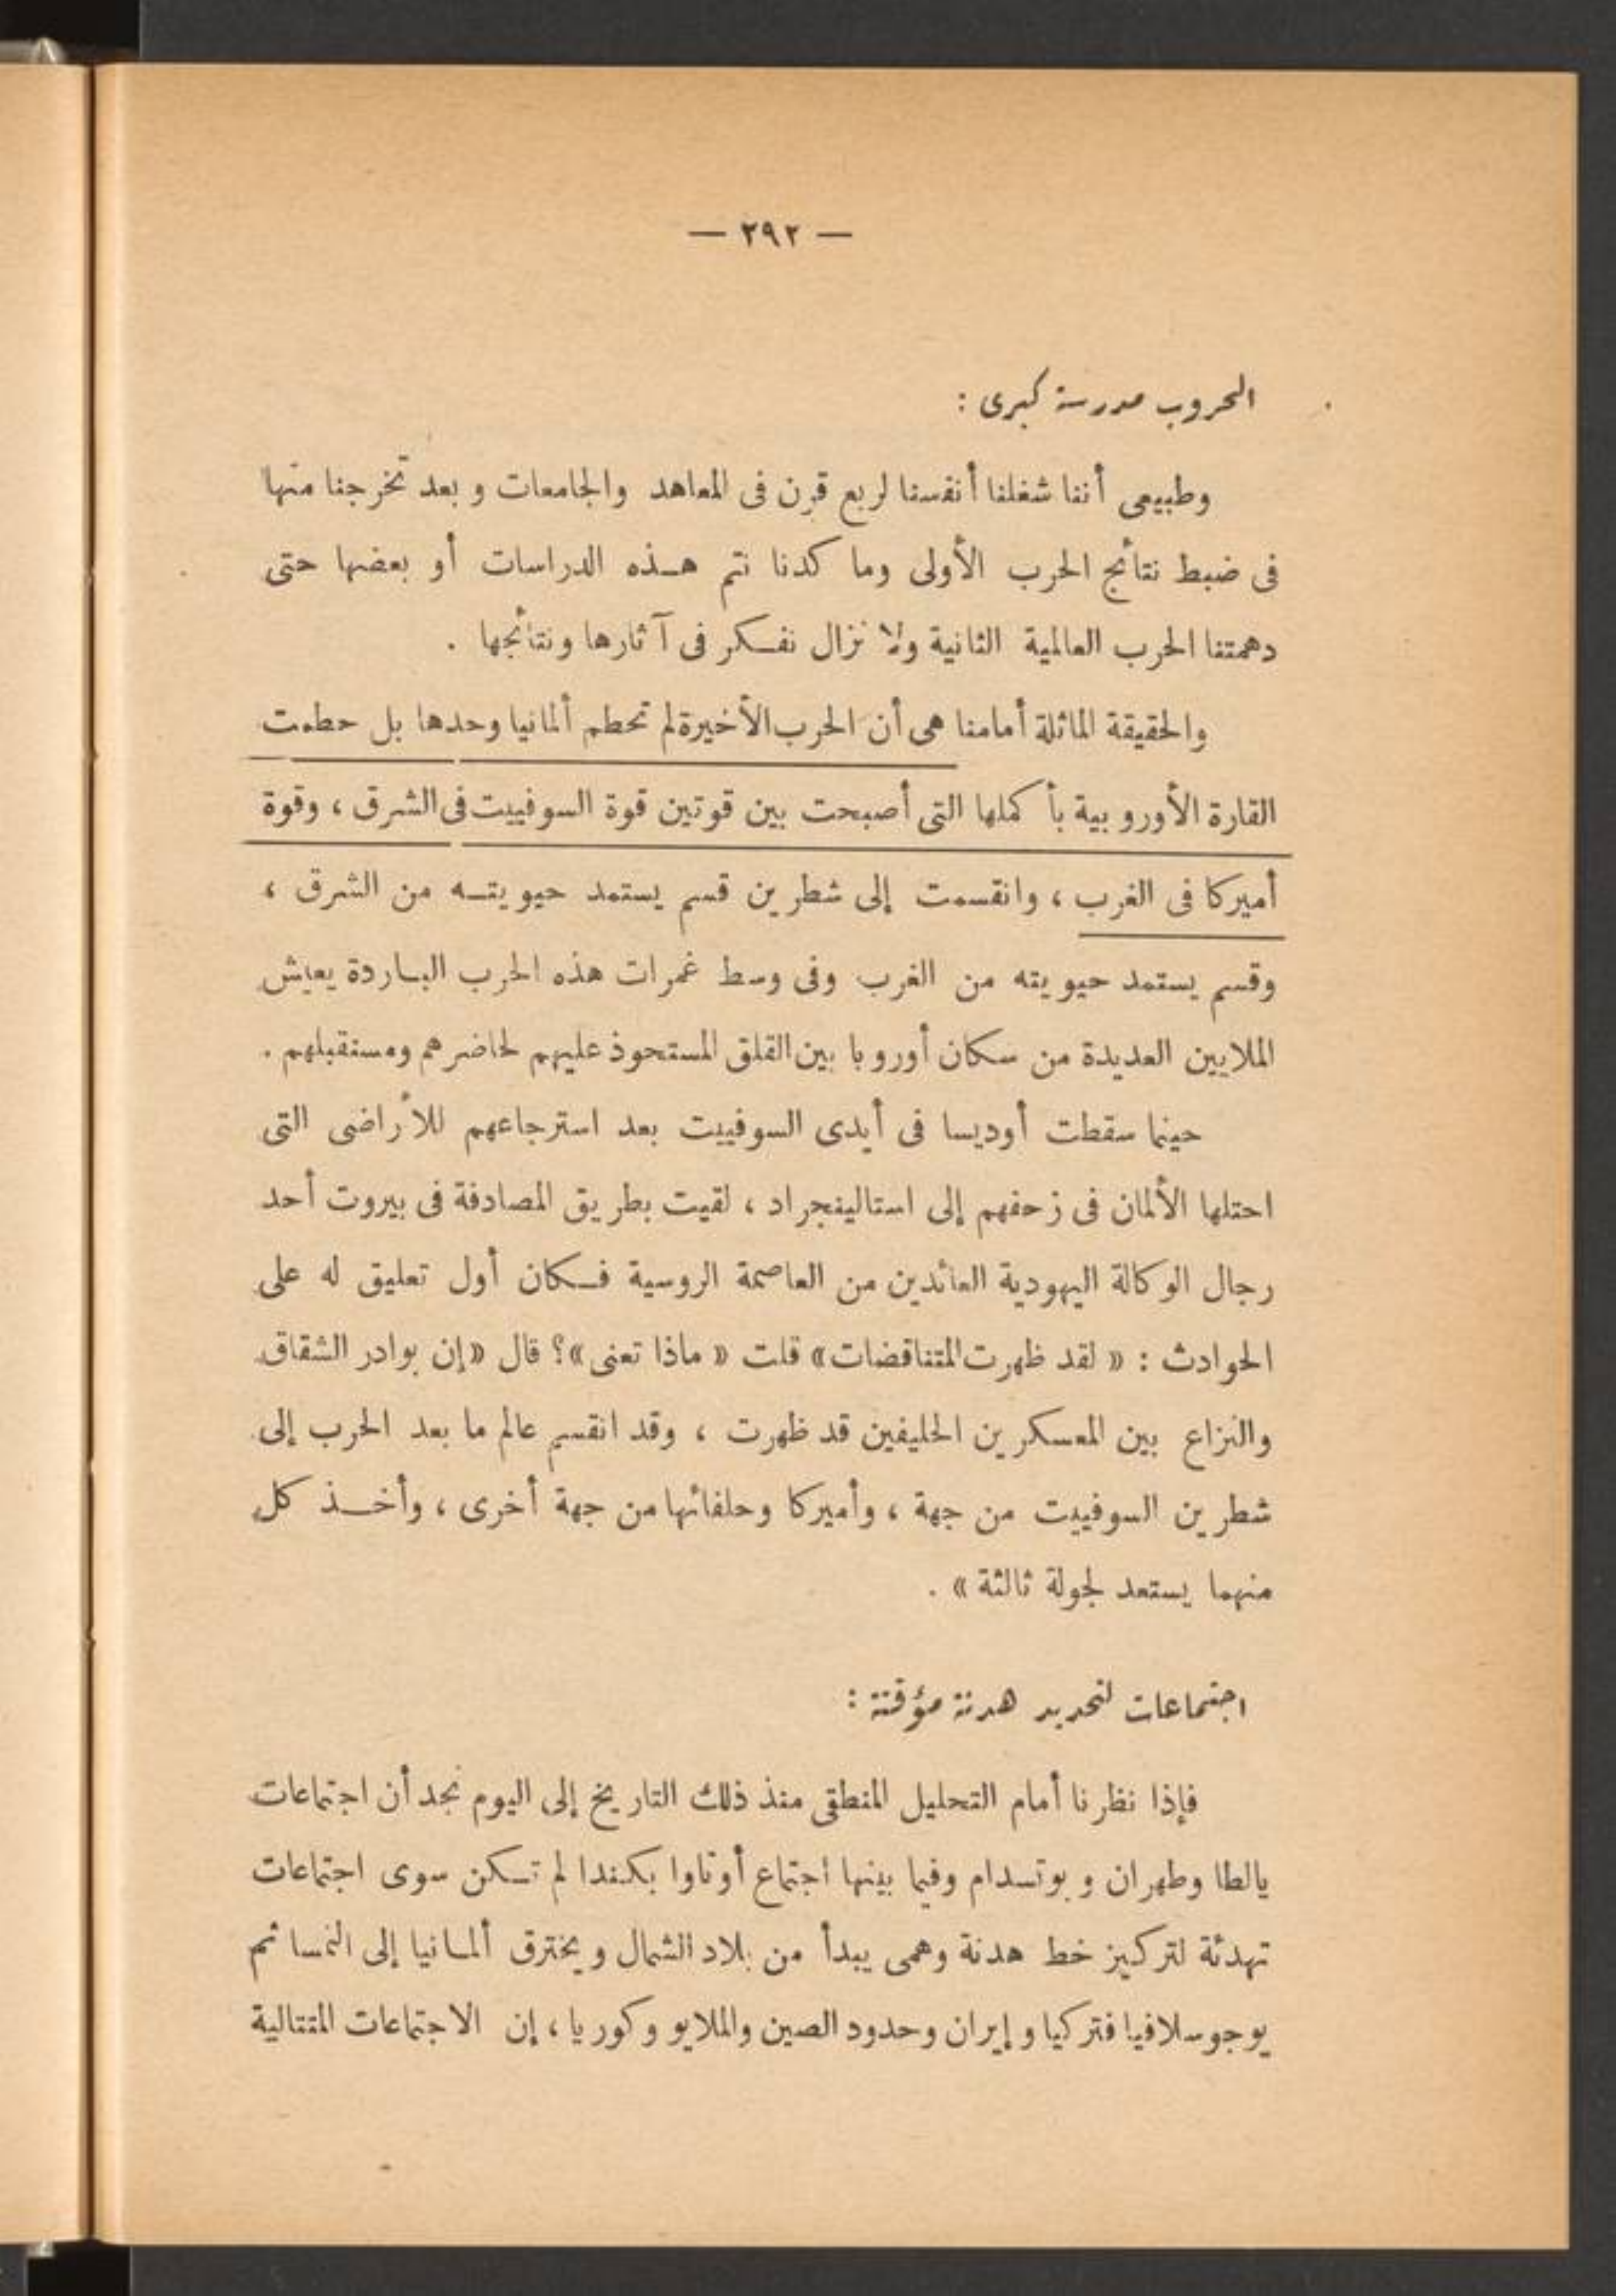 — ٢٩٢ —
الحروب مدرسة كبرى :
وطبيعى أننا شغلنا أنفسنا لربع قرن فى المعاهد والجامعات وبعد تخرجنا منها
فى ضبط نتائج الحرب الأولى وما كدنا نتم هذه الدراسات أو بعضها حتى
دهمتنا الحرب العالمية الثانية ولا نزال نفكر فى آثارها ونتائجها .
والحقيقة الماثلة أمامنا هى أن الحرب الأخيرة لم تحطم ألمانيا وحدها بل حطمت
القارة الأوروبية بأكملها التى أصبحت بين قوتين قوة السوفييت فى الشرق ، وقوة
أميركا فى الغرب ، وانقسمت إلى شطرين قسم يستمد حيويته من الشرق ،
وقسم يستمد حيويته من الغرب وفى وسط غمرات هذه الحرب الباردة يعيش
الملايين العديدة من سكان أوروبا بين القلق المستحوذ عليهم لحاضرهم ومستقبلهم .
حينما سقطت أوديسا فى أيدى السوفييت بعد استرجاعهم للأراضى التى
احتلها الألمان فى زحفهم إلى استالينجراد ، لقيت بطريق المصادفة فى بيروت أحد
رجال الوكالة اليهودية العائدين من العاصمة الروسية فكان أول تعليق له على
الحوادث : « لقد ظهرت المتناقضات» قلت « ماذا تعنى»؟ قال «إن بوادر الشقاق
والنزاع بين المعسكرين الحليفين قد ظهرت ، وقد انقسم عالم ما بعد الحرب إلى
شطرين السوفييت من جهة ، وأميركا وحلفائها من جهة أخرى ، وأخذ كل
منهما يستعد لجولة ثالثة » .
اجتماعات لتحديد هدنة مؤقتة :
فإذا نظرنا أمام التحليل المنطقى منذ ذلك التاريخ إلى اليوم نجد أن اجتماعات
يالطا وطهران وبوتسدام وفيما بينها اجتماع أوتاوا بكندا لم تكن سوى اجتماعات
تهدئة لتركيز خط هدنة وهمى يبدأ من بلاد الشمال ويخترق ألمانيا إلى النمسا ثم
يوجوسلافيا فتركيا وإيران وحدود الصين والملايو وكوريا ، إن الاجتماعات المتتالية